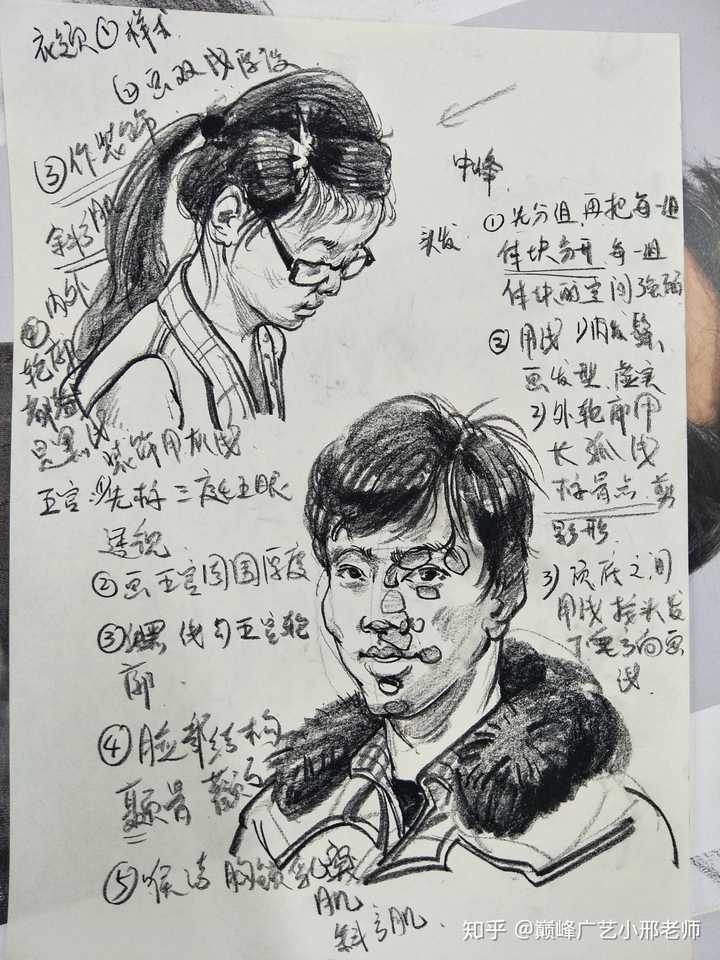 衣领①样式
②画双线厚度
③作装饰
斜方肌
内外
轮廓
都给
是黑线
装饰用加线
中峰
头发
①先分组 再把每一组
体块分开 每一组
体块的空间强弱
②用线
画发型 虚实
2)外轮廓用
长弧线
标骨点 剪
影形
3)顶底之间
用线 按头发
方向画
线
五官①先标三庭五眼
透视
②画五官周围厚度
③黑线勾五官轮
廓
④脸部结构
颧骨
⑤喉结 胸锁乳突
肌
斜方肌
知乎 @巅峰广艺小邢老师